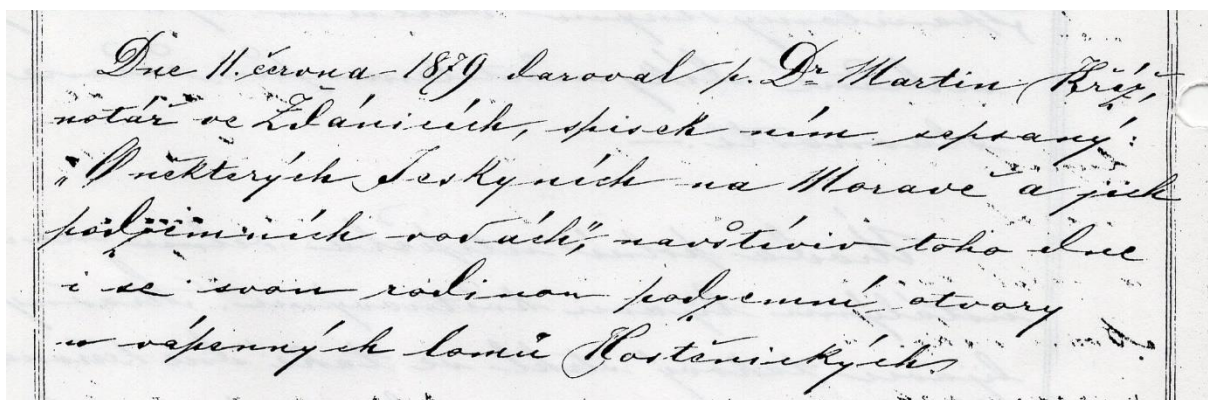 Dne 11. června 1879 daroval p. Dr Martin Kříž,
notář ve Ždánicích, spisek ním sepsaný:
„O některých Jeskyních na Moravě a jich
podzemních vodách“, navštíviv toho dne
i se svou rodinou podzemní otvory
u vápenných lomů Hostěnických.